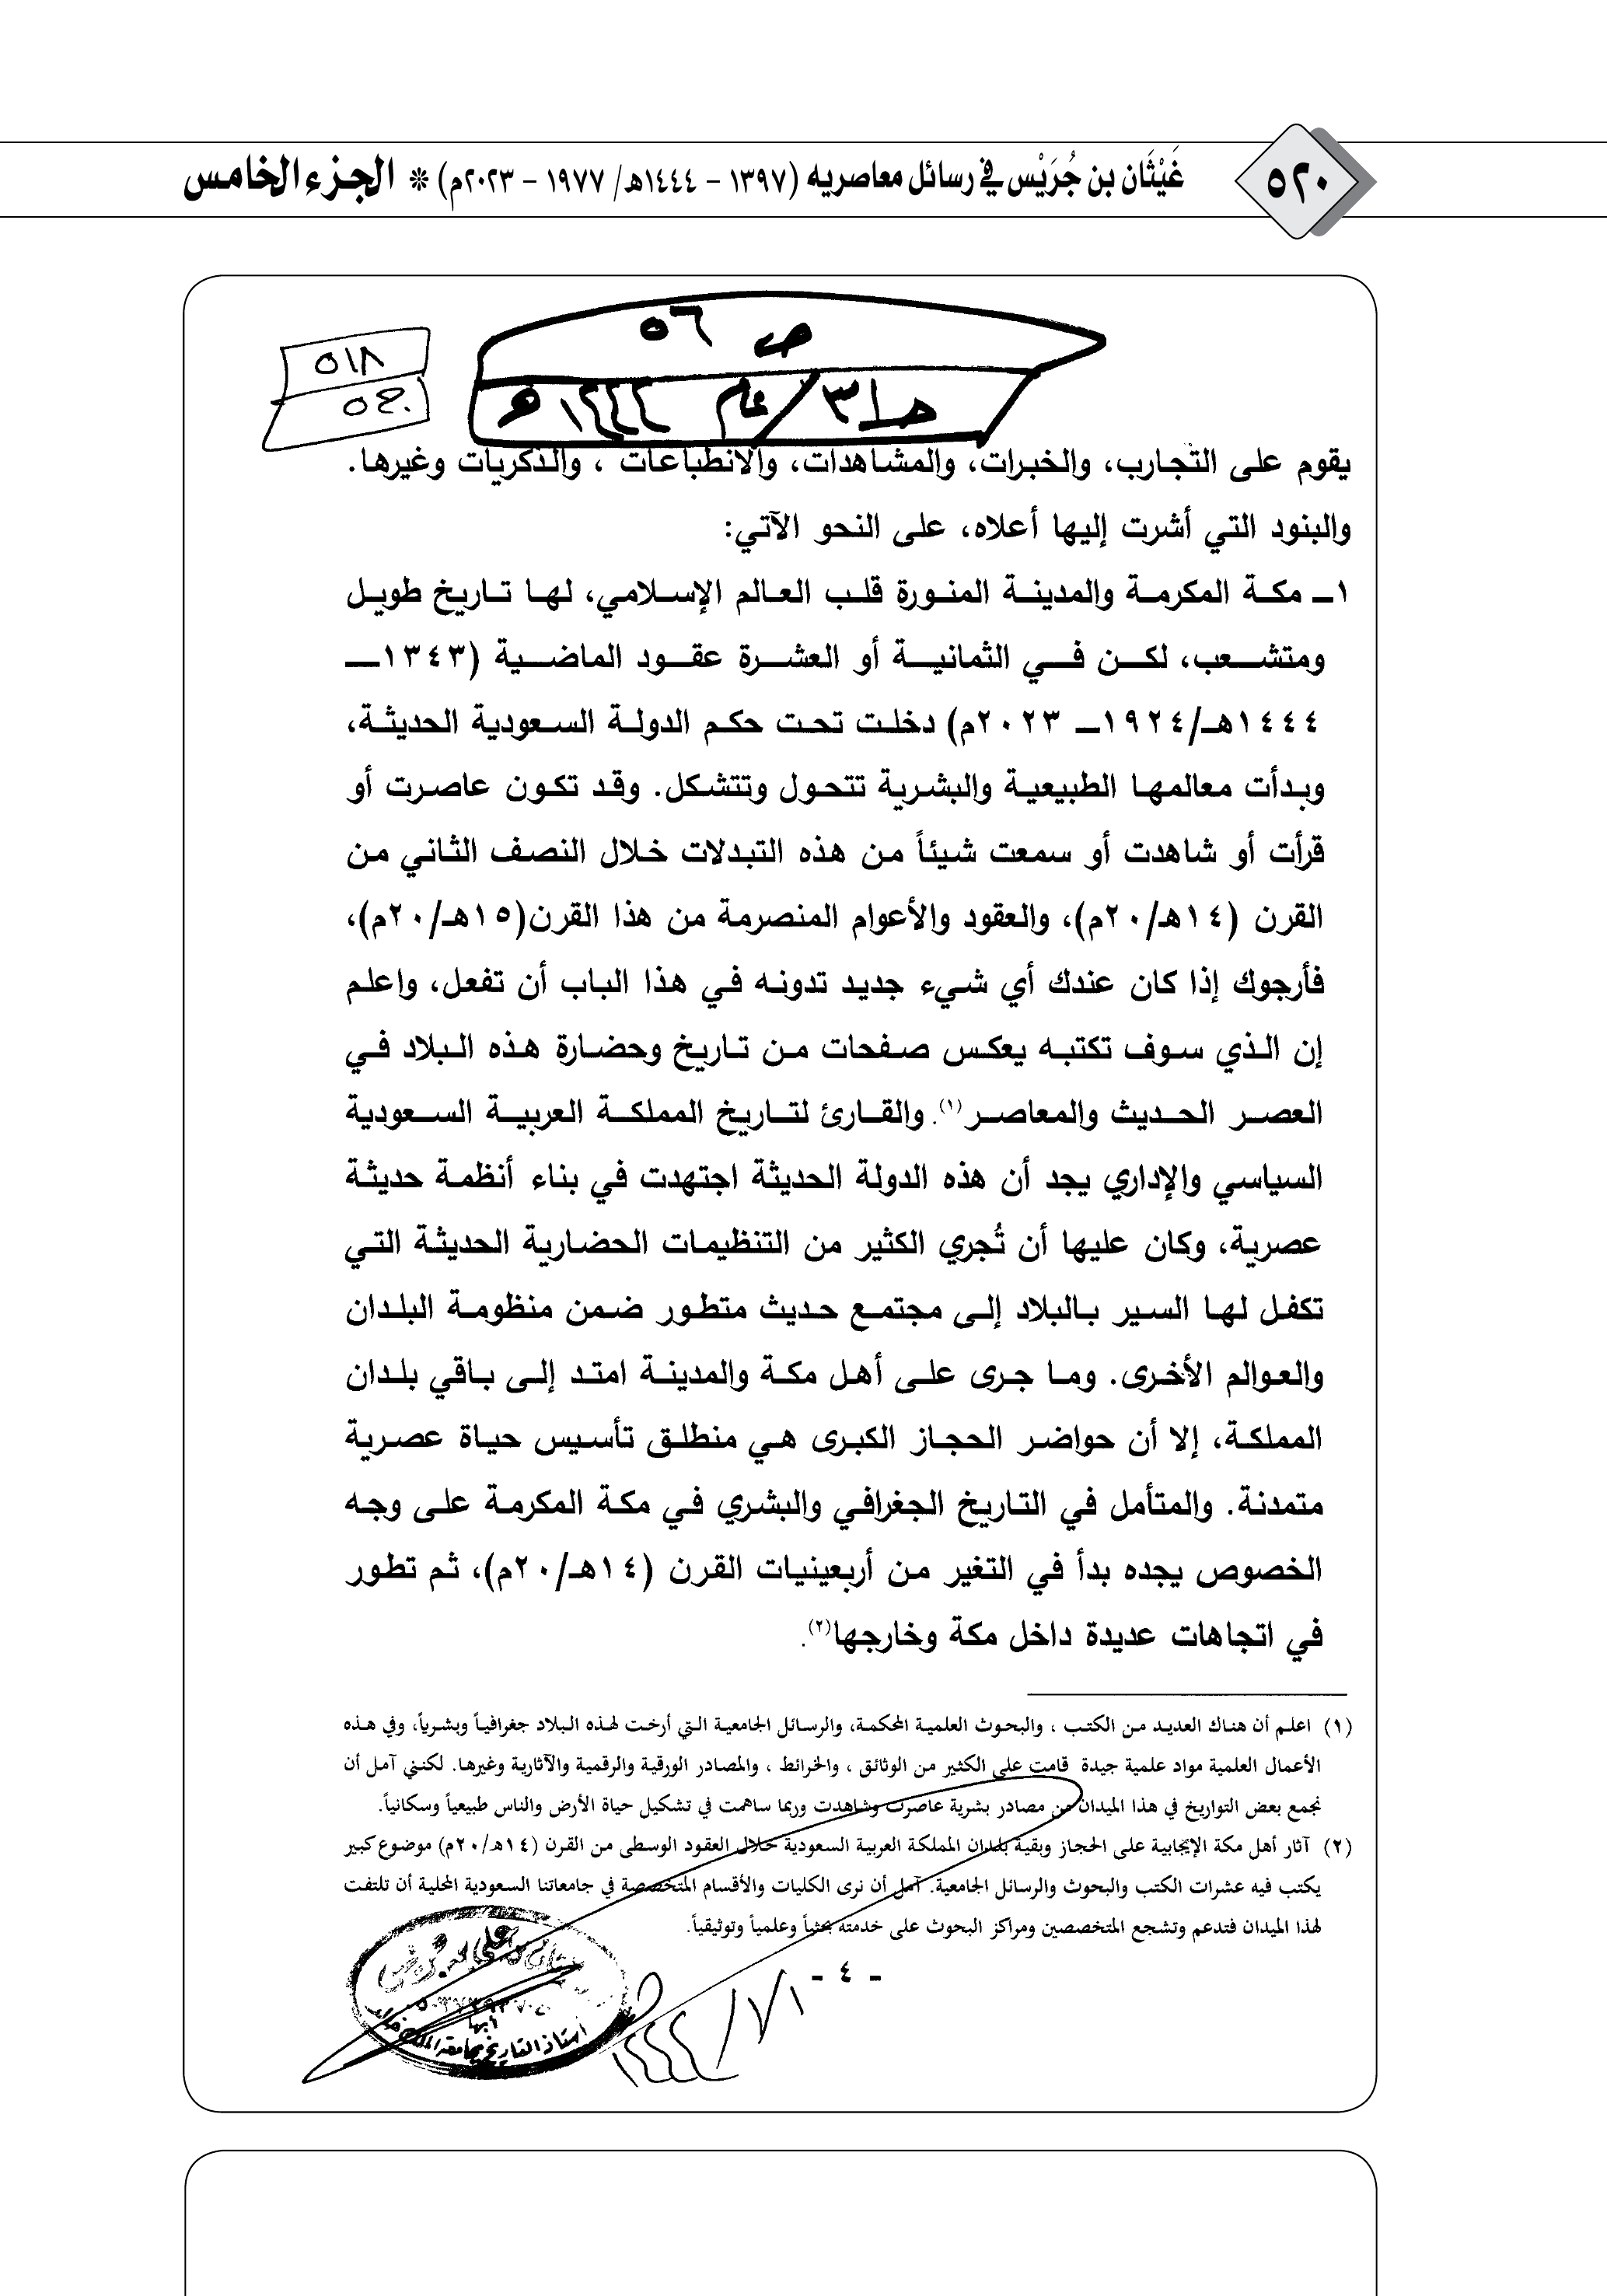 ٥٢٠
غَيْثَان بن جُرَيْس في رسائل معاصريه (١٣٩٧ – ١٤٤٤هـ/ ١٩٧٧ – ٢٠٢٣م) * الجزء الخامس
ص ٥٦
٥١٨
عام ١٤٤٤هـ
٥٢٠
يقوم على التجارب، والخبرات، والمشاهدات، والانطباعات ، والذكريات وغيرها.
والبنود التي أشرت إليها أعلاه، على النحو الآتي:
١ـ مكة المكرمة والمدينة المنورة قلب العالم الإسلامي، لها تاريخ طويل
ومتشعب، لكن في الثمانية أو العشرة عقود الماضية (١٣٤٣ـ
١٤٤٤هـ/١٩٢٤ـ ٢٠٢٣م) دخلت تحت حكم الدولة السعودية الحديثة،
وبدأت معالمها الطبيعية والبشرية تتحول وتتشكل. وقد تكون عاصرت أو
قرأت أو شاهدت أو سمعت شيئاً من هذه التبدلات خلال النصف الثاني من
القرن (١٤هـ/٢٠م)، والعقود والأعوام المنصرمة من هذا القرن(١٥هـ/٢٠م)،
فأرجوك إذا كان عندك أي شيء جديد تدونه في هذا الباب أن تفعل، واعلم
إن الذي سوف تكتبه يعكس صفحات من تاريخ وحضارة هذه البلاد في
العصر الحديث والمعاصر(١). والقارئ لتاريخ المملكة العربية السعودية
السياسي والإداري يجد أن هذه الدولة الحديثة اجتهدت في بناء أنظمة حديثة
عصرية، وكان عليها أن تُجري الكثير من التنظيمات الحضارية الحديثة التي
تكفل لها السير بالبلاد إلى مجتمع حديث متطور ضمن منظومة البلدان
والعوالم الأخرى. وما جرى على أهل مكة والمدينة امتد إلى باقي بلدان
المملكة، إلا أن حواضر الحجاز الكبرى هي منطلق تأسيس حياة عصرية
متمدنة. والمتأمل في التاريخ الجغرافي والبشري في مكة المكرمة على وجه
الخصوص يجده بدأ في التغير من أربعينيات القرن (١٤هـ/٢٠م)، ثم تطور
في اتجاهات عديدة داخل مكة وخارجها(٢).
(١) اعلم أن هناك العديد من الكتب ، والبحوث العلمية المحكمة، والرسائل الجامعية التي أرخت لهذه البلاد جغرافياً وبشرياً، وفي هذه
الأعمال العلمية مواد علمية جيدة قامت على الكثير من الوثائق ، والخرائط ، والمصادر الورقية والرقمية والآثارية وغيرها. لكنني آمل أن
نجمع بعض التواريخ في هذا الميدان من مصادر بشرية عاصرت وشاهدت وربما ساهمت في تشكيل حياة الأرض والناس طبيعياً وسكانياً.
(٢) آثار أهل مكة الإيجابية على الحجاز وبقية بلدان المملكة العربية السعودية خلال العقود الوسطى من القرن (١٤هـ/٢٠م) موضوع كبير
يكتب فيه عشرات الكتب والبحوث والرسائل الجامعية. آمل أن نرى الكليات والأقسام المتخصصة في جامعاتنا السعودية المحلية أن تلتفت
لهذا الميدان فتدعم وتشجع المتخصصين ومراكز البحوث على خدمته بحثياً وعلمياً وتوثيقياً.
- ٤ -
أبها
أستاذ التاريخ بجامعة الملك خالد